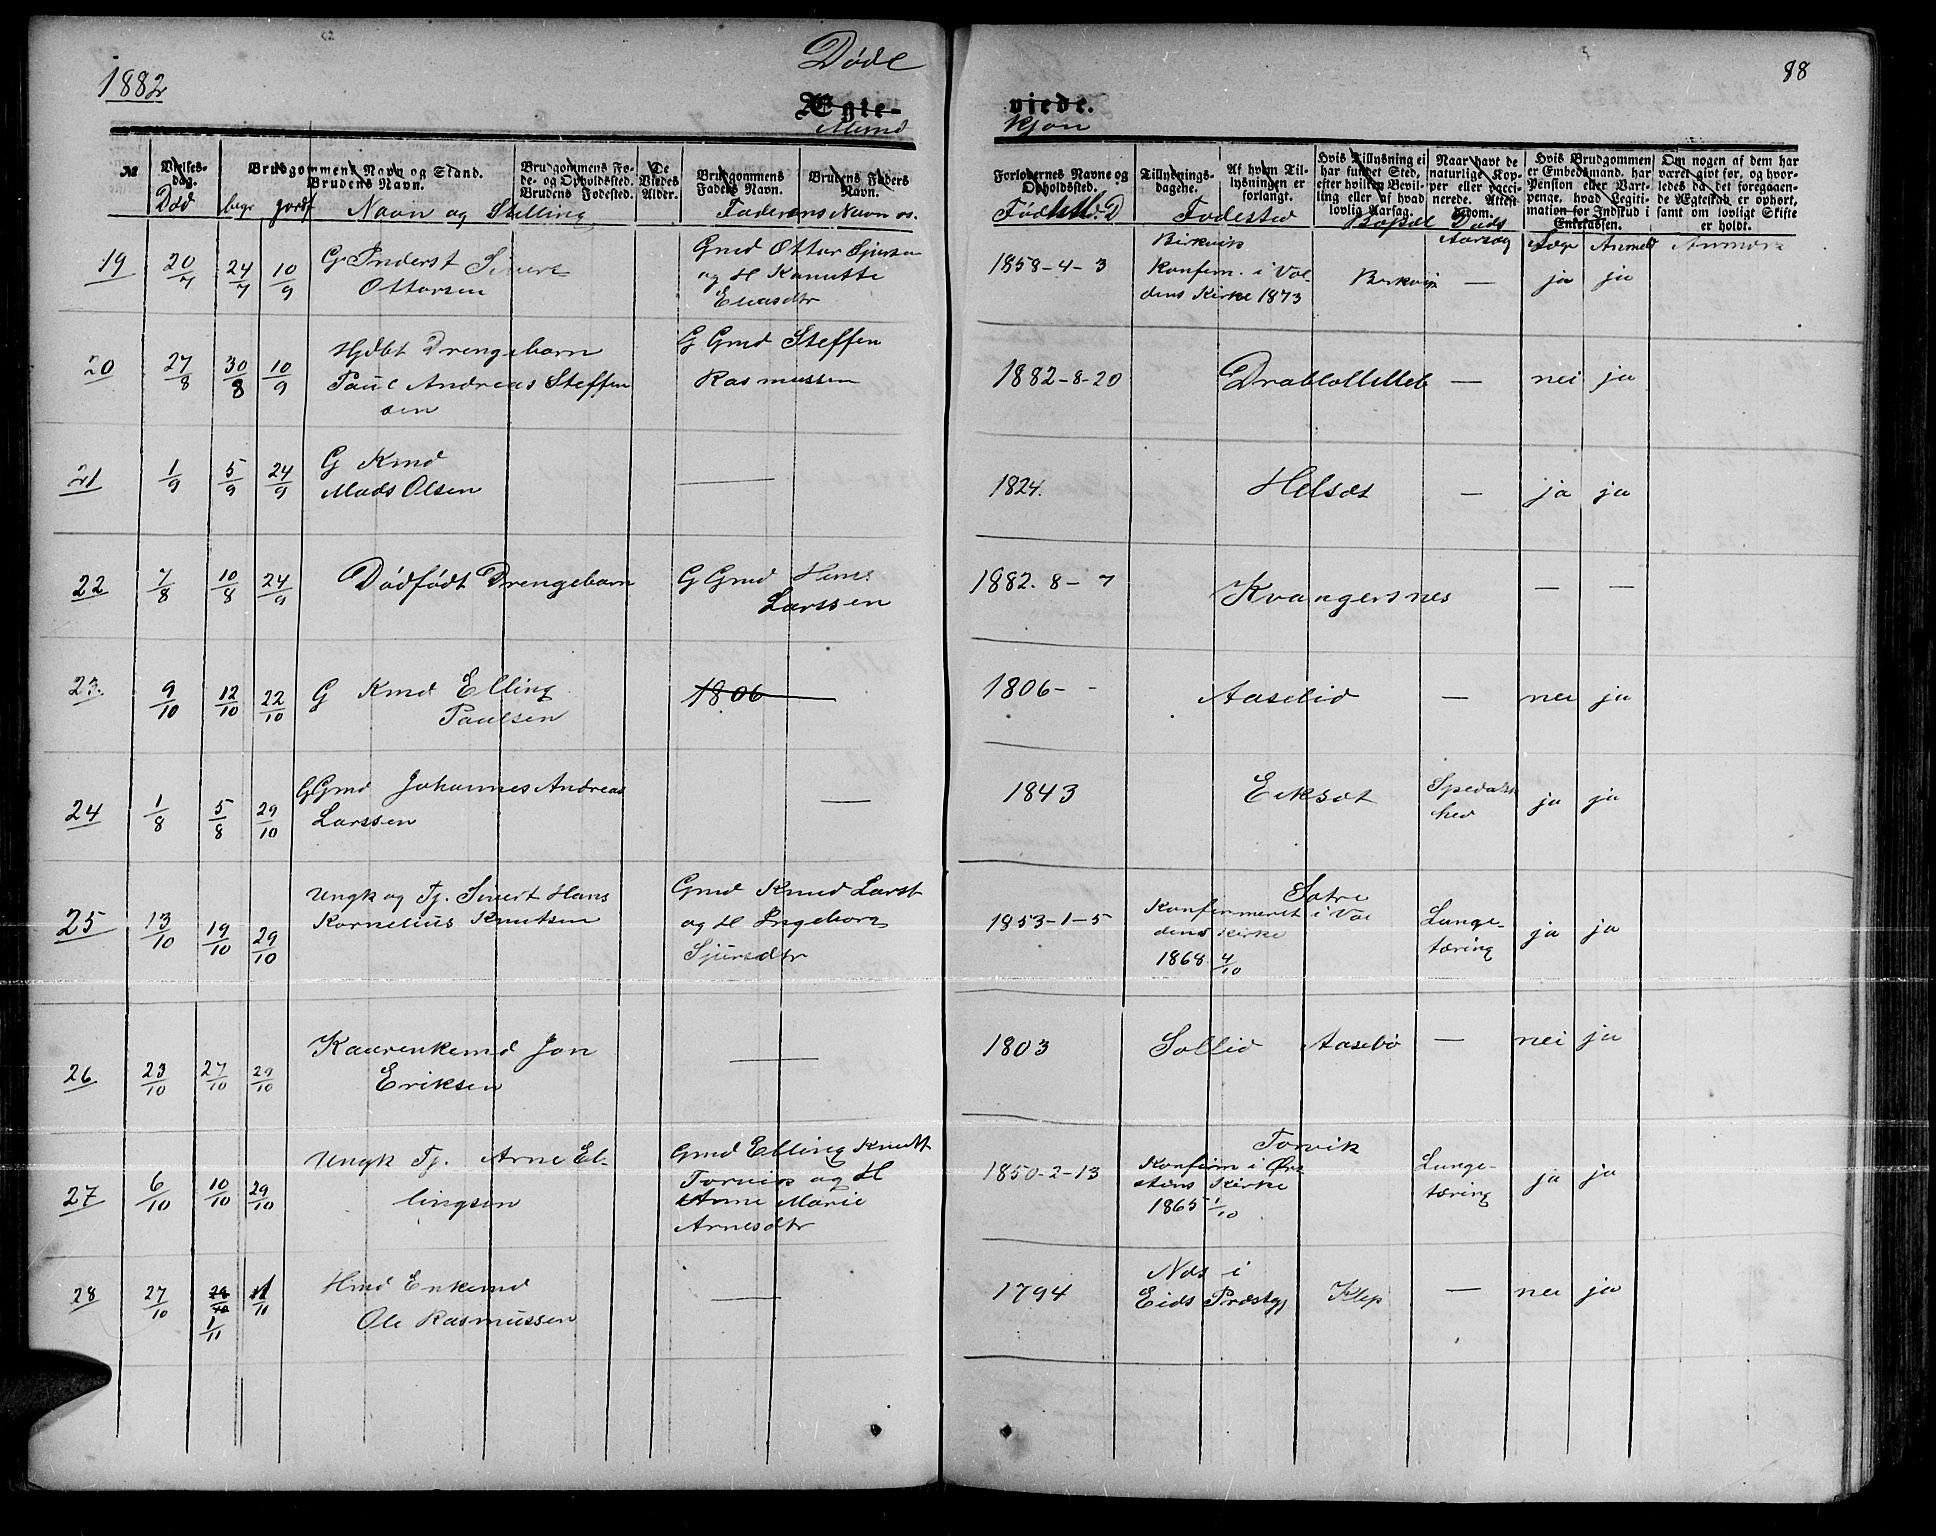 1882
Døde
88
Ægte-
viede.
Mand
kjøn
№
Vielses-
dag.
Død
begr
jordf
Brudgommens Navn og Stand.
Brudens Navn.
Navn og Stilling
Brudgommens Fø-
de- og Opholdssted.
Brudens Fødested.
De
Viedes
Alder.
Brudgommens
Faders Navn.
Brudens Faders
Navn.
Faderens Navn
Forlovernes Navne og
Opholdssted.
Tillysnings-
dagene.
Fødested
Af hvem Til-
lysningen er
forlangt.
Hvis Tillysning ei
har fundet Sted,
efter hvilken Bevil-
ling eller af hvad
lovlig Aarsag.
Bopæl
Naar havt de
naturlige Kop-
per eller vacci-
nerede. Attest
herom.
Døds
Aarsag
Hvis Brudgommen
er Embedsmand, har
Pension eller Vart-
penge, hvad Legiti-
mation for Indskud i
Enkekassen.
Læge
Anmeld
Om nogen af dem har
været givt før, og hvor-
ledes da det foregaaen-
de Ægteskab er ophørt,
samt om lovligt Skifte
er holdt.
Anmærk
19 20/7 24/7 10/9 G Inderst Sivert
Ottarsen
Gmd Ottar Sjursen
og H Knutte
Eliasdtr
1858-4-3
Birkvik
Konfirm. i Vol-
dens Kirke 1873
Birkvik — ja ja
20 27/8 30/8 10/9 Hjdbt Drengebarn
Paul Andreas Steffen
sen
G Gmd Steffen
Rasmussen
1882-8-20 — nei ja
21 1/9 5/9 24/9 G Kmd
Mads Olsen
—
1824. Helsæt — ja ja
22 7/8 10/8 24/9 Dødfødt Drengebarn
G Gmd Hans
Larssen
1882. 8-7 Kvangersnes — —
23. 9/10 12/10 22/10 G Kmd Elling
Paulsen
1806
1806- - Aaselid — nei ja
24 1/8 5/8 29/10 GGmd Johannes Andreas
Larssen
—
1843 Eiksæt
Spedalsk
hed
ja ja
25 13/10 19/10 29/10 Ungk og Tj. Sivert Hans
Kornelius Knutsen
Gmd Knud Larss
og H Ingeborg
Sjursdtr
1853-1-5
Sætre
Konfirmeret i Vol
dens Kirke
1868 4/10
Lunge-
tæring
ja ja
26 23/10 27/10 29/10 Kaarenkemd Jon
Eriksen
—
1803 Sollid Aasebø — nei ja
27 6/10 10/10 29/10 Ungk Tj. Arne El-
lingsen
Gmd Elling Knutt
Torvik og H
Anne Marie
Arnesdtr
1850-2-13
Torvik
Konfirm i Ør-
stens Kirke
1865 1/10
Lunge-
tæring
ja ja
28 27/10 1/11 1/11 Hmd Enkemd
Ole Rasmussen
—
1794
Nos i
Eids Præstegj
Klep — nei ja